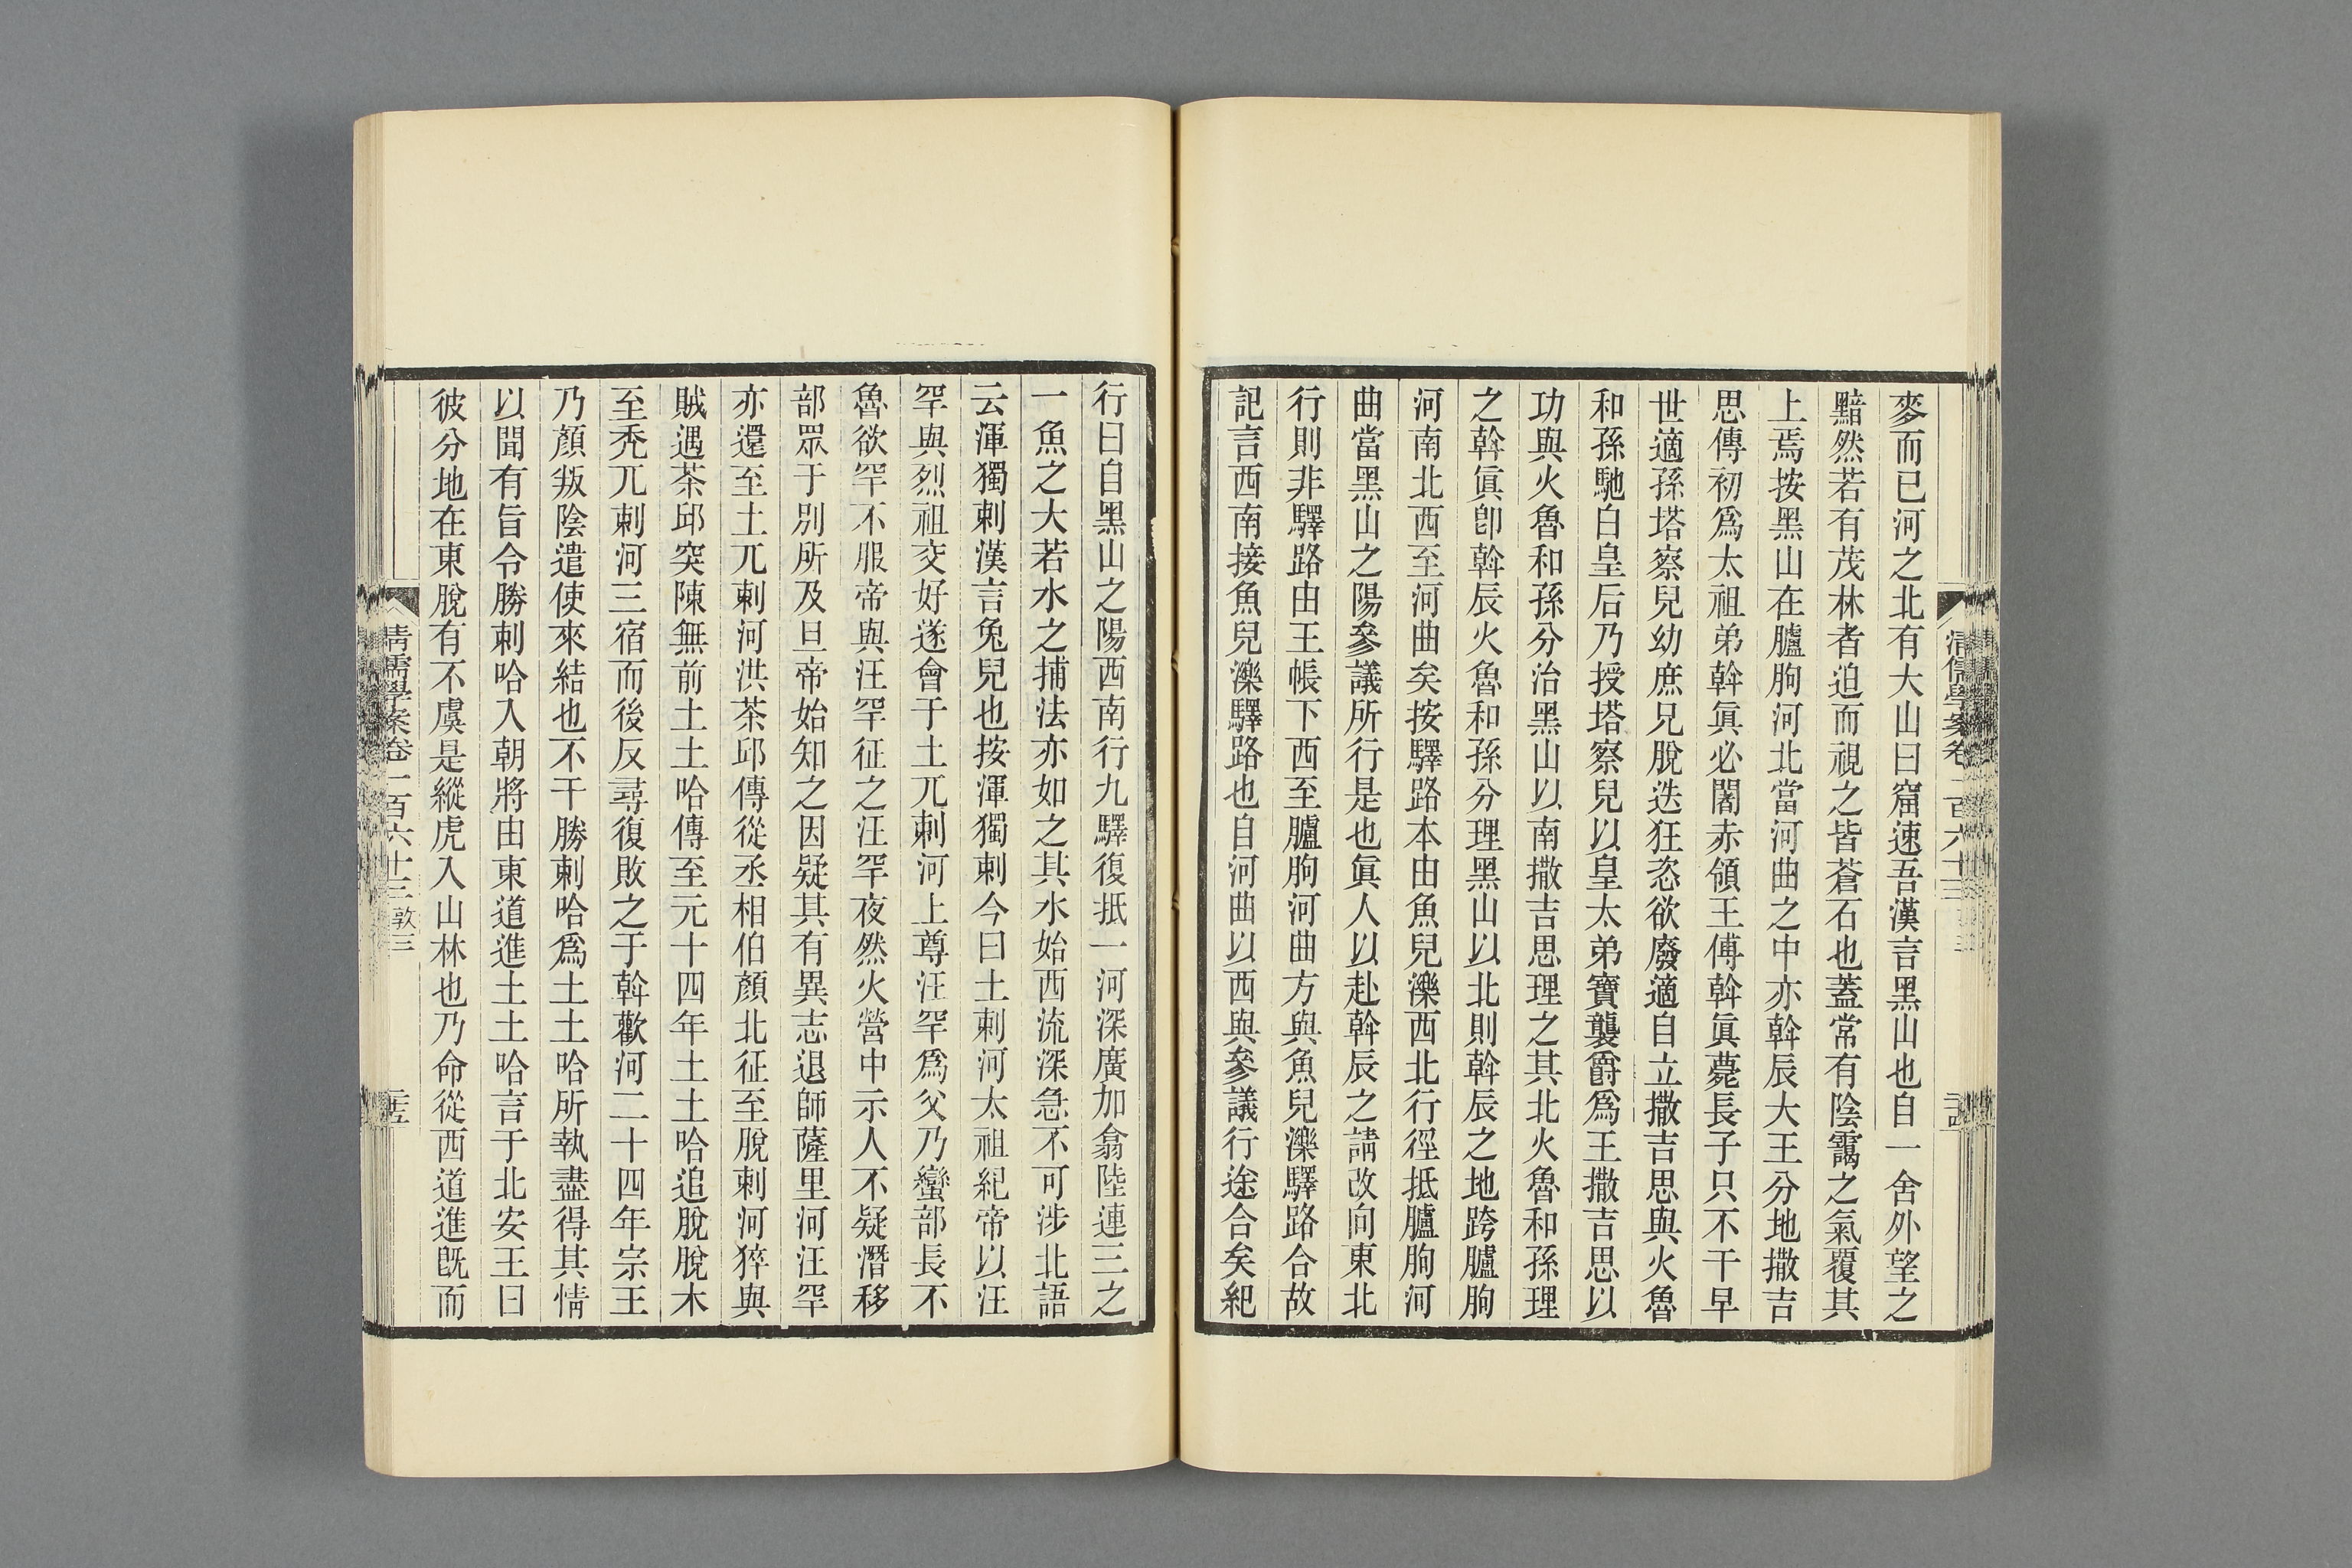 麥而已河之北有大山曰窟速吾漢言黑山也自一舍外望之
黯然若有茂林者迫而視之皆蒼石也蓋常有陰靄之氣覆其
上焉按黑山在臚朐河北當河曲之中亦斡辰大王分地撒吉
思傳初爲太祖弟斡眞必闍赤領王傅斡眞薨長子只不干早
世適孫塔察兒幼庶兄脫迭狂恣欲廢適自立撒吉思與火魯
和孫馳白皇后乃授塔察兒以皇太弟寶襲爵爲王撒吉思以
功與火魯和孫分治黑山以南撒吉思理之其北火魯和孫理
之斡眞卽斡辰火魯和孫分理黑山以北則斡辰之地跨臚朐
河南北西至河曲矣按驛路本由魚兒濼西北行徑抵臚朐河
曲當黑山之陽參議所行是也眞人以赴斡辰之請改向東北
行則非驛路由王帳下西至臚朐河曲方與魚兒濼驛路合故
記言西南接魚兒濼驛路也自河曲以西與參議行途合矣紀
行曰自黑山之陽西南行九驛復抵一河深廣加翕陸連三之
一魚之大若水之捕法亦如之其水始西流深急不可涉北語
云渾獨剌漢言兔兒也按渾獨剌今曰土剌河太祖紀帝以汪
罕與烈祖交好遂會于土兀剌河上尊汪罕爲父乃蠻部長不
魯欲罕不服帝與汪罕征之汪罕夜然火營中示人不疑潛移
部眾于別所及旦帝始知之因疑其有異志退師薩里河汪罕
亦還至土兀剌河洪茶邱傳從丞相伯顏北征至脫剌河猝與
賊遇茶邱突陳無前土土哈傳至元十四年土土哈追脫脫木
至禿兀剌河三宿而後反尋復敗之于斡歡河二十四年宗王
乃顏叛陰遣使來結也不干勝剌哈爲土土哈所執盡得其情
以聞有旨令勝剌哈入朝將由東道進土土哈言于北安王曰
彼分地在東脫有不虞是縱虎入山林也乃命從西道進旣而
清儒學案卷一百六十三 敦三